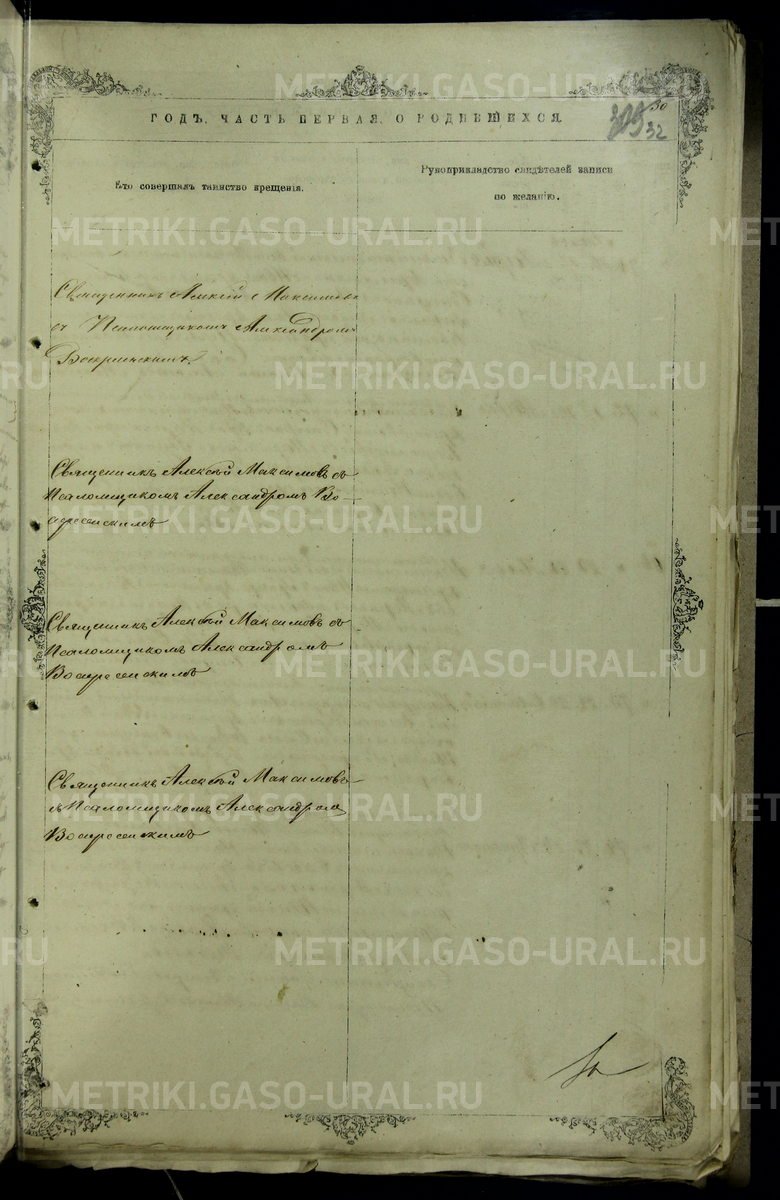 METRIKI.GASO-URAL.RU
ГОДЪ, ЧАСТЬ ПЕРВАЯ, О РОДИВШИХСЯ.
30
32
Кто совершалъ таинство крещенія.
Рукоприкладство свидѣтелей записи
по желанію.
METRIKI.GASO-URAL.RU
Священникъ Алексій Максимовъ
съ Псаломщикомъ Александромъ
Воскресенскимъ.
METRIKI.GASO-URAL.RU
Священникъ Алексѣй Максимовъ съ
Псаломщикомъ Александромъ Во-
скресенскимъ
METRIKI.GASO-URAL.RU
Священникъ Алексѣй Максимовъ съ
Псаломщикомъ Александромъ
Воскресенскимъ
METRIKI.GASO-URAL.RU
Священникъ Алексѣй Максимовъ
съ Псаломщикомъ Александромъ
Воскресенскимъ
METRIKI.GASO-URAL.RU
METRIKI.GASO-URAL.RU
METRIKI.GASO-URAL.RU